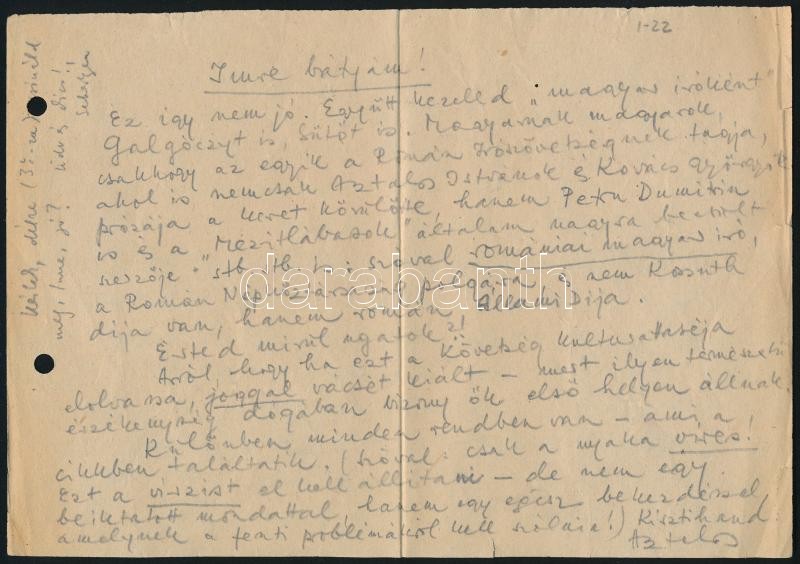 1-22
Imre bátyám!
Ez így nem jó. Együtt kezeled „magyar íróként”
Galgóczyt is, Sütőt is. Magyarnak magyarok,
csakhogy az egyik a Román Írószövetségnek tagja,
ahol is nemcsak Asztalos Istvánok és Kovács Györgyök
prózája a keret körülötte, hanem Petru Dumitriu
is és a "Mezítlábasok" általam nagyra becsült
szerzője stb. stb. szóval romániai magyar író,
a Román Népköztársaság polgára, és nem Kossuth
díja van, hanem román Állami Díja.
Érted mirül ugatok?!
Arról, hogy ha ezt a Követség kulturattaséja
elolvassa, joggal vácsét kiált – mert ilyen természetű
érzékenység dogában bizony ők első helyen állnak.
Különben minden rendben van – ami a
cikkben találtatik. (Szóval: csak a nyaka véres!
Ezt a vérzést el kell állítani – de nem egy
beiktatott mondattal, hanem egy egész bekezdéssel,
amelynek a fenti problémákról kell szólnia!) Kisztihand
Asztalos
meg, Imre, jó?
darabanth